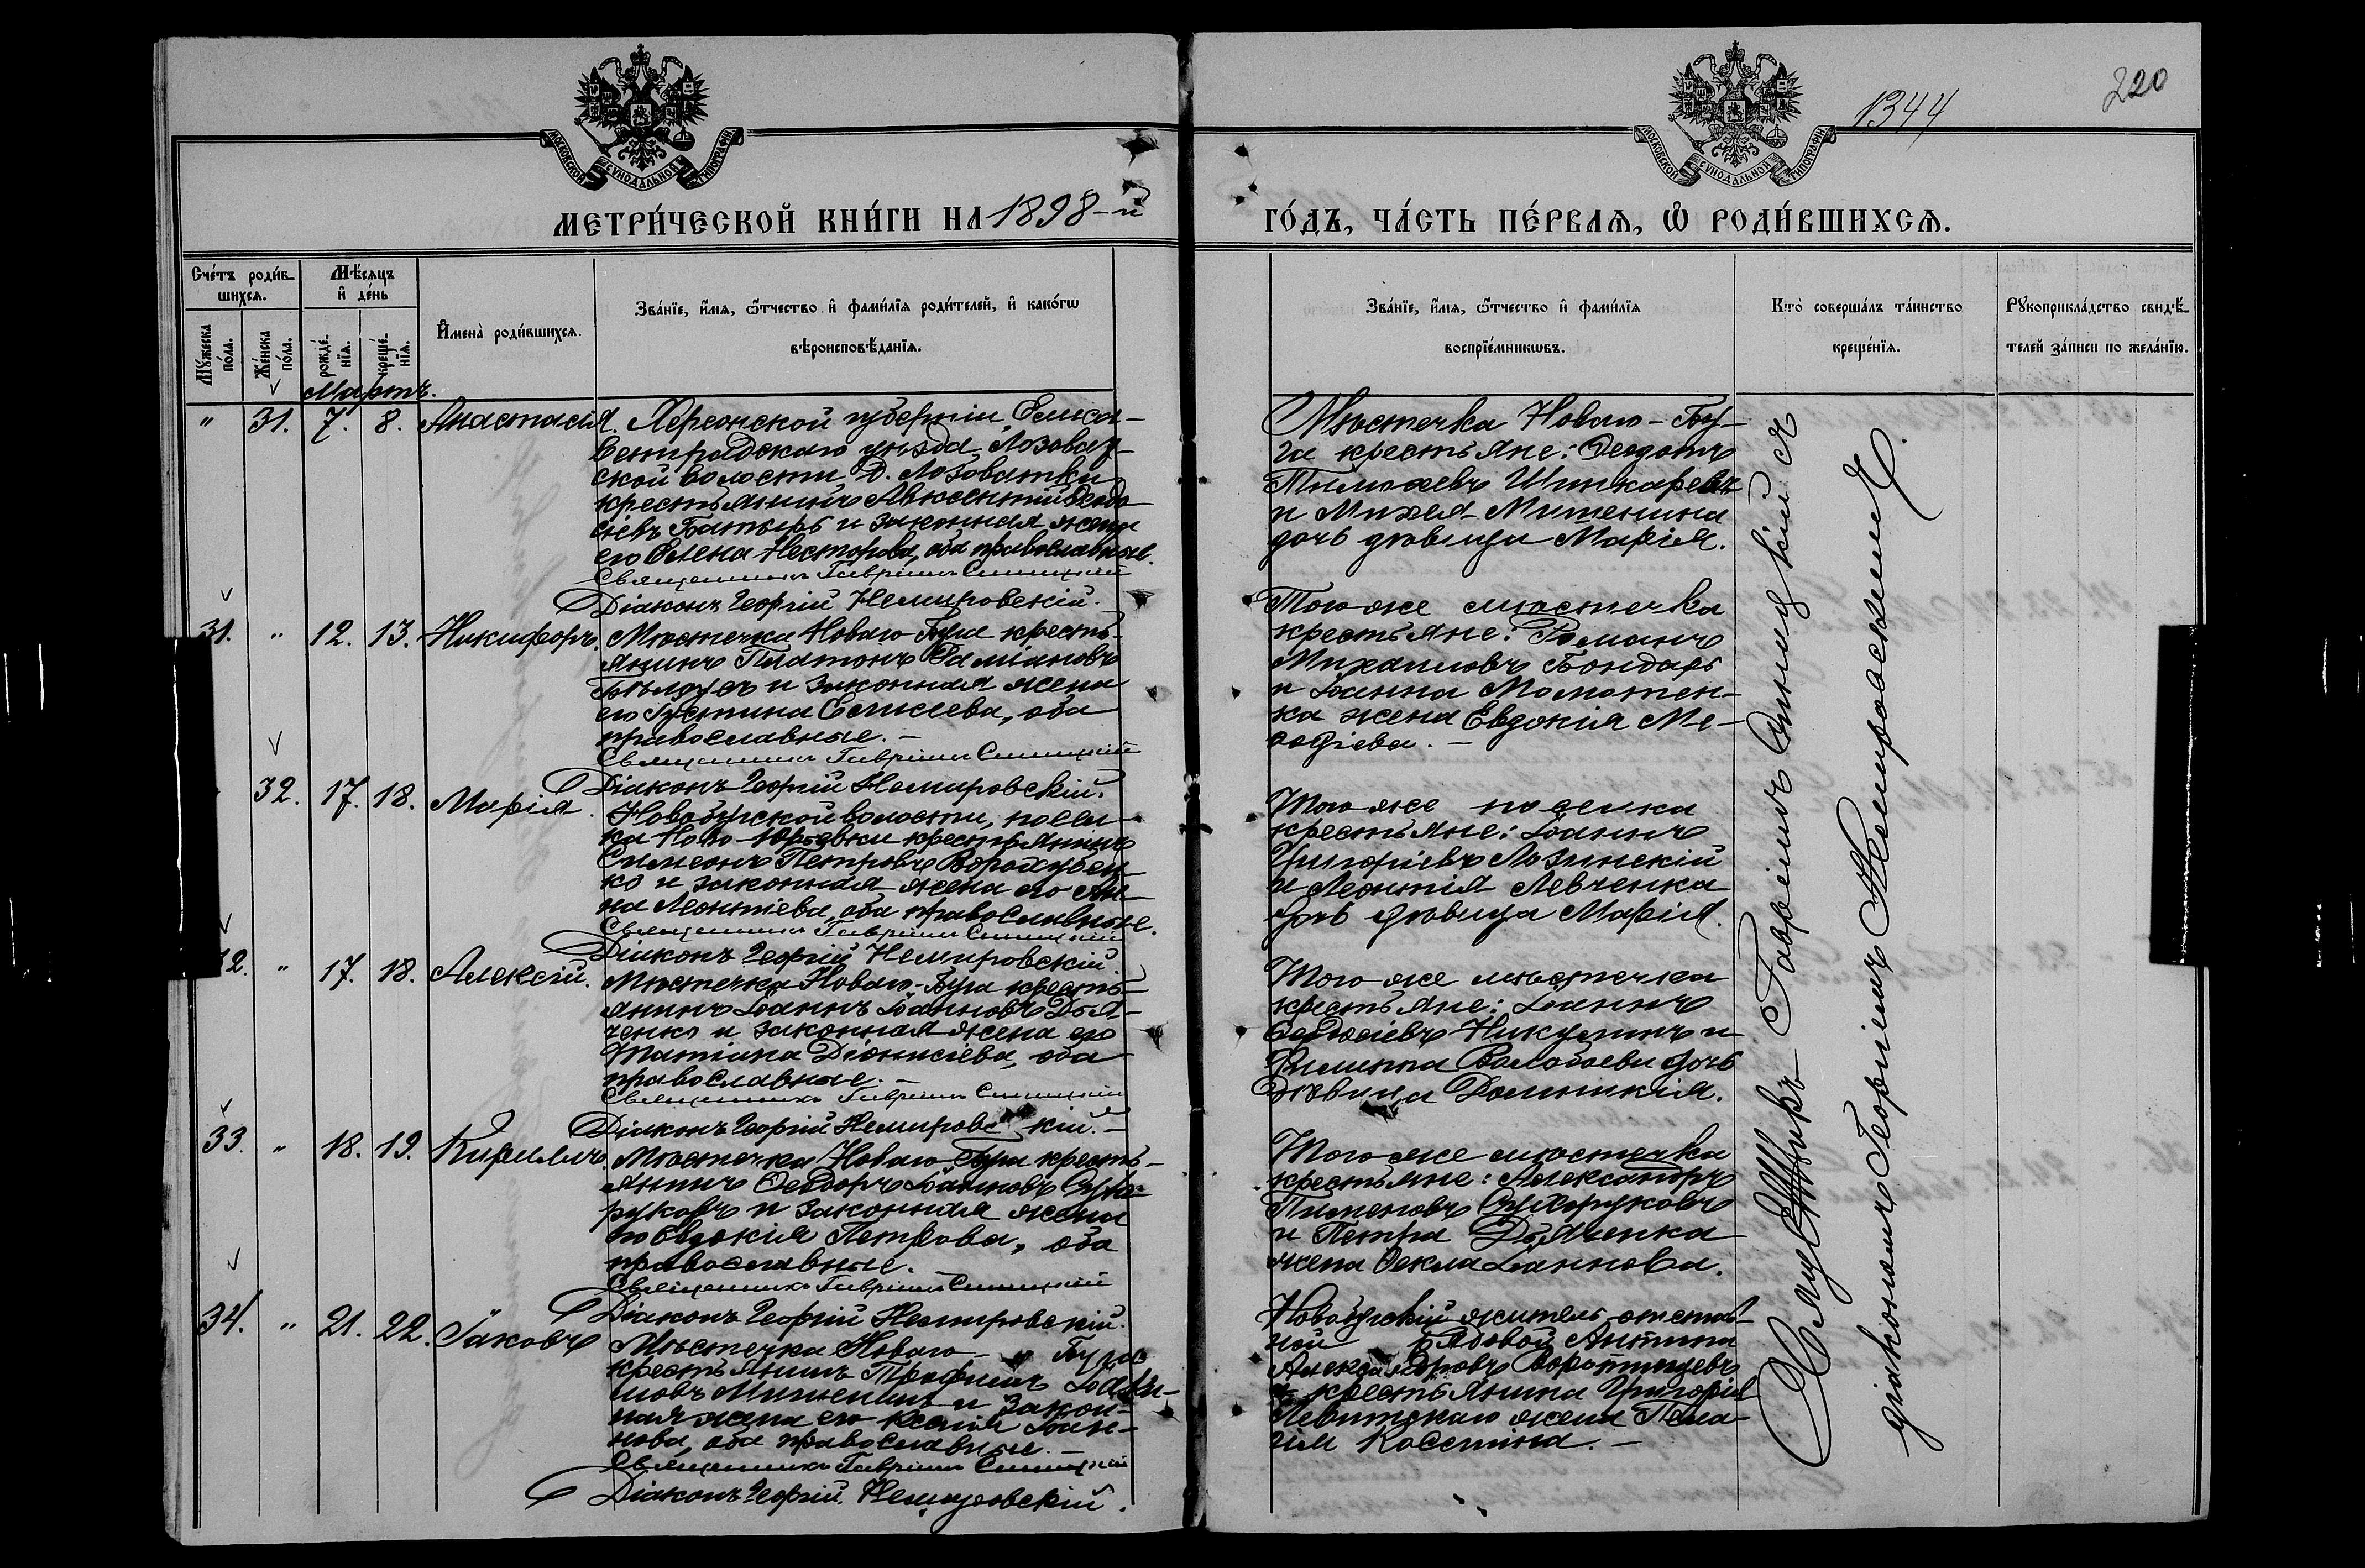 1344
220
МОСКОВСКОЙ СУНОДАЛЬНОЙ ТИПОГРАФІИ
МОСКОВСКОЙ СУНОДАЛЬНОЙ ТИПОГРАФІИ
МЕТРИ́ЧЕСКОЙ КНИ́ГИ НА 1898-й
ГО́ДЪ, ЧА́СТЬ ПЕ́РВАѦ, Ѡ РОДИ́ВШИХСѦ.
Сче́тъ роди́в-
шихсѧ.
Мꙋ́жеска
по́ла.
Же́нска
по́ла.
Мѣ́сѧцъ
и҆ де́нь
рожде́-
нїѧ.
креще́-
нїѧ.
И҆мена̀ роди́вшихсѧ.
Зва́нїе, и҆́мѧ, ѻ҆́тчество и҆ фами́лїѧ роди́телей, и҆ како́гѡ
вѣроисповѣ́данїѧ.
Зва́нїе, и҆́мѧ, ѻ҆́тчество и҆ фами́лїѧ
воспрїе́мникѡвъ.
Кто̀ соверша́лъ та́инство
креще́нїѧ.
Рꙋкоприкла́дство свидѣ́-
телей за́писи по жела́нїю.
Мартъ.
" 31. 7. 8. Анастасія.
Херсонской губерніи, Елиса-
ветградскаго уѣзда, Лозоват-
ской волости, Д. Лозоватки
крестьянинъ Авксентій Ѳеодо-
сіевъ Батырь и законная жена
его Елена Несторова, оба православные.
Священникъ Гавріилъ Синицкій
Діаконъ Георгій Немировскій.
Мѣстечка Новаго-Бу-
га крестьяне: Ѳеодотъ
Тимоѳеевъ Шинкаревъ
и Михея Митенина
дочь дѣвица Марія.
31. " 12. 13. Никифоръ.
Мѣстечка Новаго-Буга кресть-
янинъ Платонъ Даміановъ
и законная жена
его Іустина Елисеева, оба
православные. -
Священникъ Гавріилъ Синицкій
Діаконъ Георгій Немировскій.
Того же мѣстечка
крестьяне: Романъ
Михаиловъ Бондарь
и Іоанна
жена Евдокія Ме-
ѳодіева. -
32. 17. 18. Марія.
Новобугской волости, посел-
ка Ново-Юрьевки крестьянинъ
Симеонъ Петровъ
и законная жена его Ан-
на Леонтіева, оба православные.
Священникъ Гавріилъ Синицкій
Діаконъ Георгій Немировскій.
Того же поселка
крестьяне: Іоаннъ
Григоріевъ Лозинскій
и Леонтія Левченка
дочь дѣвица Марія.
32. " 17. 18. Алексій.
Мѣстечка Новаго-Буга кресть-
янинъ Іоаннъ Іоанновъ Дья-
ченко и законная жена его
Татіана Діонисіева, оба
православные. -
Священникъ Гавріилъ Синицкій
Діаконъ Георгій Немировскій. -
Того же мѣстечка
крестьяне: Іоаннъ
Никулинъ и
Филиппа Волобоева дочь
дѣвица Домникія.
33. " 18. 19. Кириллъ.
Мѣстечка Новаго-Буга кресть-
янинъ Ѳеодоръ Іоанновъ Сухо-
руковъ и законная жена
его Евдокія Петрова, оба
православные.
Священникъ Гавріилъ Синицкій
Діаконъ Георгій Немировскій.
Того же мѣстечка
крестьяне: Александръ
Пименовъ Сухоруковъ
и Петра Дьяченка
жена Ѳекла Іаннова.
34. " 21. 22. Іаковъ
Мѣстечка Новаго- Буга
крестьянинъ Трофимъ Іоан-
новъ Митенинъ и закон-
ная жена его Ксенія Іоан-
нова, оба православные. -
Священникъ Гавріилъ Синицкій
Діаконъ Георгій Немировскій.
Новобугскій житель отстав-
ной рядовой Антипа
Александровъ Воротынцевъ
и крестьянина Григорія
Левитскаго жена Пела-
гія Косьмина. -
Священникъ Гавріилъ Синицкій съ
діакономъ Георгіемъ Немировскимъ.